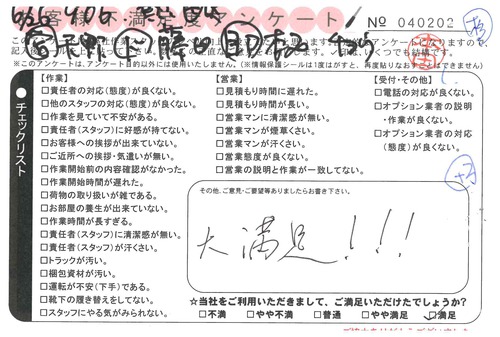 お客様満足度アンケート
№ 040202
※このアンケートは、アンケート目的以外には使用いたしません。(※情報保護シールは1度はがすと、再度貼りなおすことはできません)
チェックリスト
【作業】
□責任者の対応(態度)が良くない。
□他のスタッフの対応(態度)が良くない。
□作業を見ていて不安がある。
□責任者(スタッフ)に好感が持てない。
□お客様への挨拶が出来ていない。
□ご近所への挨拶・気遣いが無い。
□作業開始前の内容確認がなかった。
□作業開始時間が遅れた。
□荷物の取り扱いが雑である。
□お部屋の養生が出来ていない。
□作業時間が長すぎる。
□責任者(スタッフ)に清潔感が無い。
□責任者(スタッフ)が汗くさい。
□トラックが汚い。
□梱包資材が汚い。
□運転が不安(下手)である。
□靴下の履き替えをしてない。
□スタッフにやる気がみられない。
【営業】
□見積もり時間に遅れた。
□見積もり時間が長い。
□営業マンに清潔感が無い。
□営業マンが煙草くさい。
□営業マンが汗くさい。
□営業態度が良くない。
□営業の説明と作業が一致してない。
【受付・その他】
□電話の対応が良くない。
□オプション業者の説明
・作業が良くない。
□オプション業者の対応
(態度)が良くない。
その他、ご意見・ご要望等ありましたらお書き下さい。
大満足!!!
☆当社をご利用いただきまして、ご満足いただけたでしょうか?
□不満 □やや不満 □普通 □やや満足 ☑満足